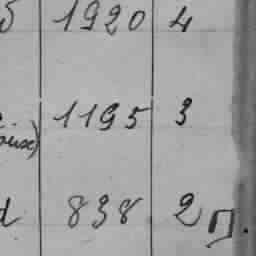 5 1920 4
1195 3
d 838 2 П.